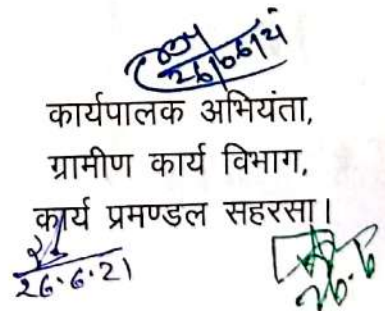 26/06/21
कार्यपालक अभियंता,
ग्रामीण कार्य विभाग,
कार्य प्रमण्डल सहरसा।
26.6.21
26.6